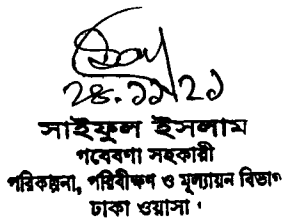 ২৪.১১/২১
সাইফুল ইসলাম
গবেষণা সহকারী
পরিকল্পনা, পরিবীক্ষণ ও মূল্যায়ন বিভাগ
ঢাকা ওয়াসা ।